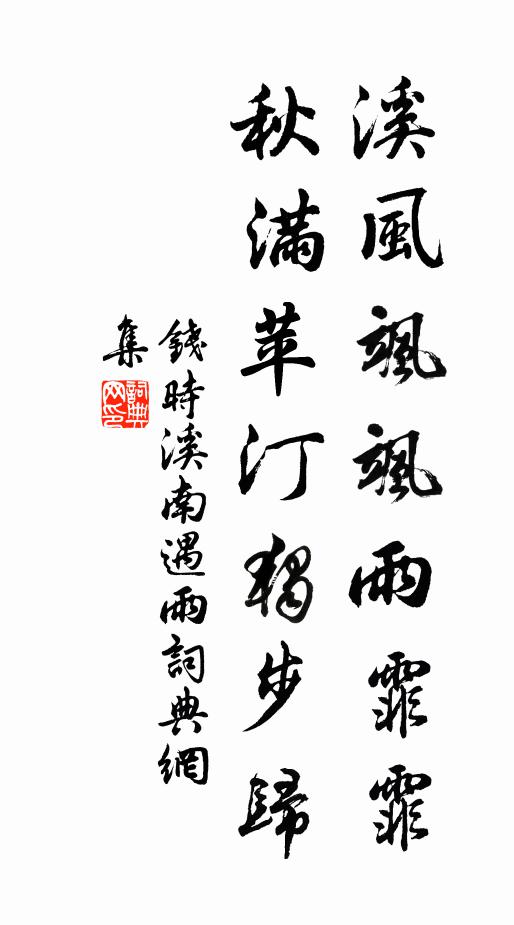 溪風颯颯雨霏霏
秋滿苹汀獨步歸
錢時溪南遇雨詞典網
集
詞典
网印